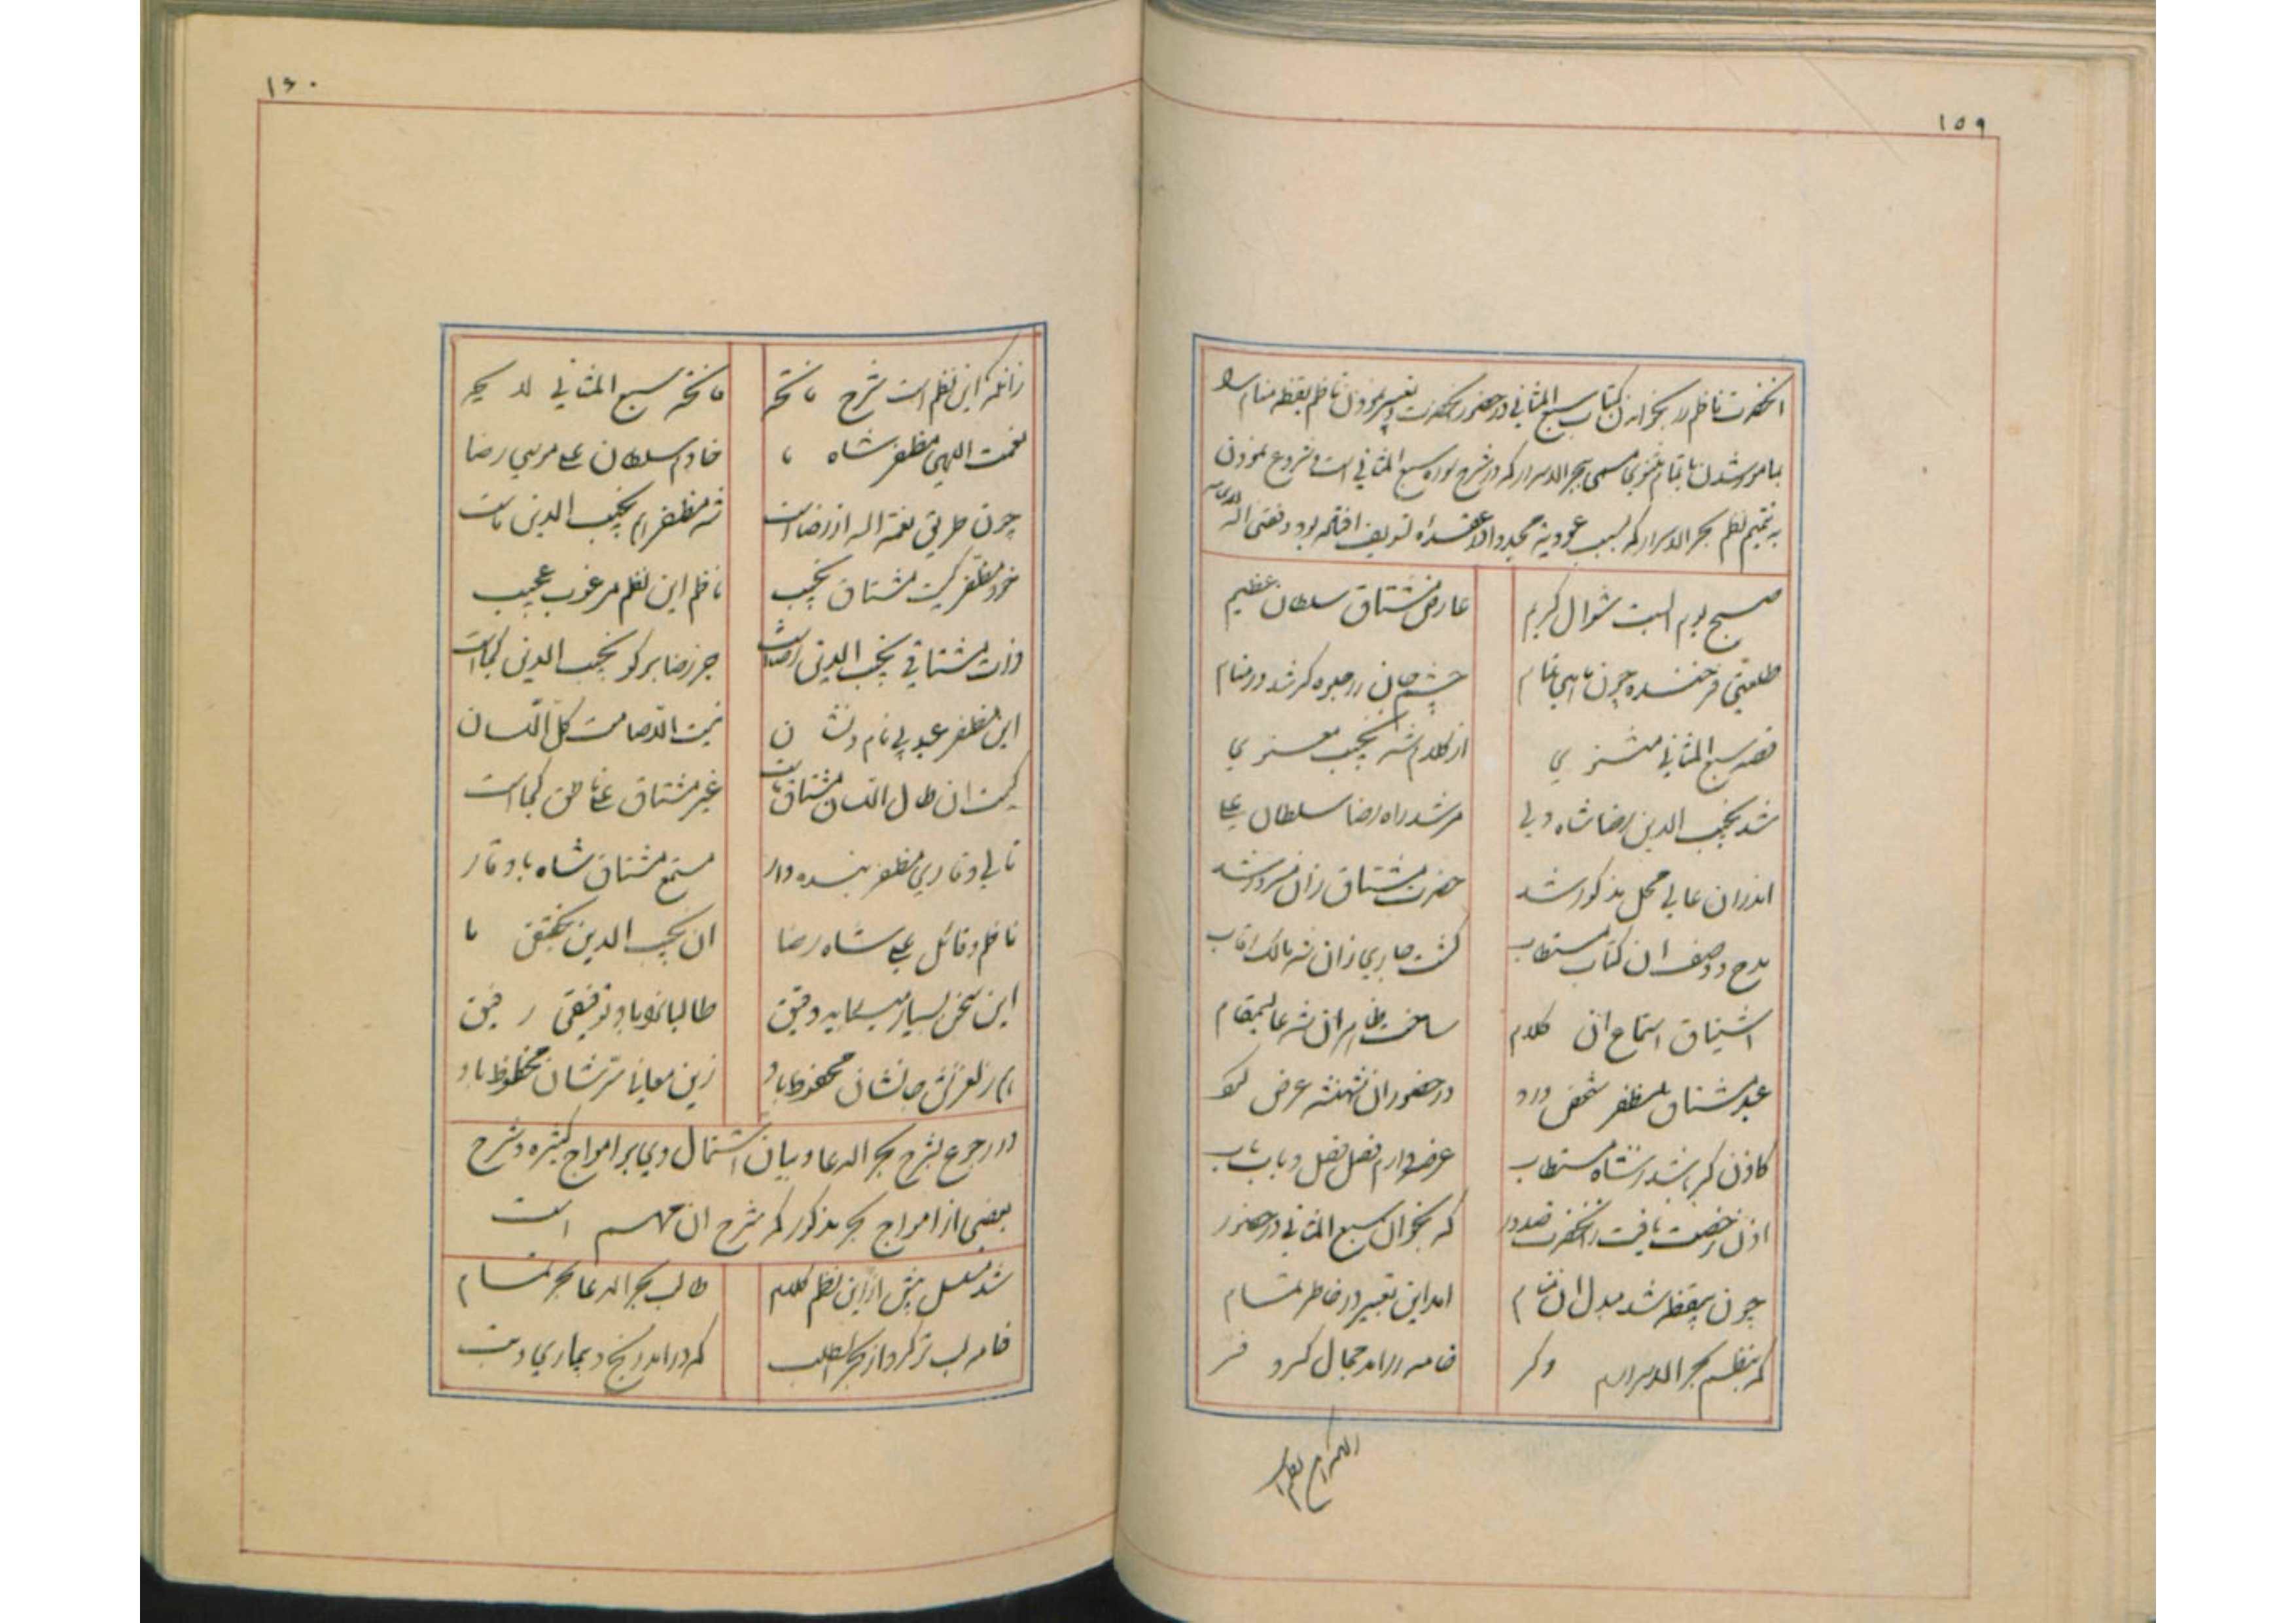 ١٥٩
انحضرت ناظم را بخواندن کتاب سبع المثانی در حضور انحضرت و تعبیر نمودن ناظم یقظه منام را
بمامور شدن باتمام مثنوی مسمی ببحر الاسرار که در شرح سوره سبع المثانی است و شروع نمودن
به تتمیم نظم بحر الاسرار که بسبب
صبح یوم البیت شوال کریم
عارض مشتاق سلطان عظیم
طلعتی فرخنده چون ماهی تمام
چشم جان را جلوه گر شد در منام
قصه سبع المثانی مثنوی
از کلام شه نجیب معنوی
شه نجیب الدین رضا شاه ولی
مرشد راه رضا سلطان علی
اندران عالی محل مذکور شد
حضرت مشتاق زان مسرور شد
مدح و وصف ان کتاب مستطاب
گشت جاری زان شه مالک رقاب
اشتیاق استماع ان کلام
ساخت ظاهر ان شه عالیمقام
عبد مشتاق مظفر شخص درد
در حضور ان شهنشه عرض کرد
کاذن گر باشد ز شاه مستطاب
عرضه دارم فصل فصل و باب باب
اذن رخصت یافت ز انحضرت صدور
که بخوان سبع المثانی در حضور
چون بیقظه شد مبدل ان منام
امد این تعبیر در خاطر تمام
که بنظم بحر الاسرار دگر
خامه را امد جمال کر و فر
١٦٠
زانکه این نظم است شرح فاتحه
فاتحه سبع المثانی لایحه
نعمت اللهی مظفر شاه ما
خادم سلطان علی موسی رضا
چون طریق نعمة اله از رضا است
شه مظفر هم نجیب الدین ماست
خود مظفر کیست مشتاق نجیب
ناظم این نظم مرغوب عجیب
ذات مشتاقی نجیب الدین رضاست
جز رضا برگو نجیب الدین کجاست
این مظفر عبد بی نام و نشان
کیست ان طال اللسان مشتاق ماست
غیر مشتاق علی ناطق کجا است
تالی و قاری مظفر بنده وار
مستمع مشتاق شاه با وقار
ناظم و قائل علی شاه رضا
ان نجیب الدین بتحقیق ما
این سخن بسیار میباید دقیق
طالبانرا باد توفیقی رفیق
هم ز لغزش جانشان محفوظ باد
زین معانی سرّشان محظوظ باد
در رجوع بشرح بحر الدعا و بیان اشتمال وی بر امواج کثیره و شرح
بعضی از امواج بحر مذکور که شرح ان مهم است
شد مفصل پیش از این نظم کلام
طالب بحر الدعا بحر تمام
خامه لب تر کرد از بحر طلب
که در امد رنج و بیماری و تب